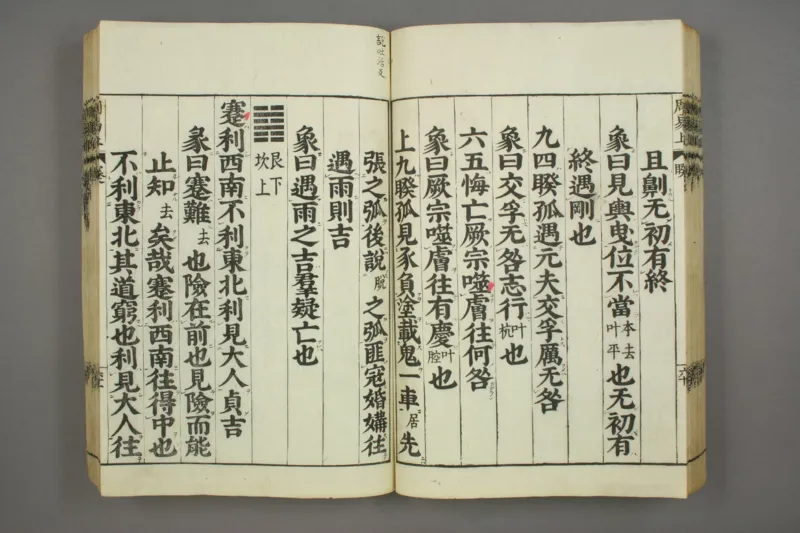 且劓无初有終
象曰見輿曳位不當本去叶平也无初有
終遇剛也
九四睽孤遇元夫交孚厲无咎
象曰交孚无咎志行叶杭也
六五悔亡厥宗噬膚往何咎
象曰厥宗噬膚往有慶叶腔也
上九睽孤見豕負塗載鬼一車居先
張之弧後說脫之弧匪寇婚媾往
遇雨則吉
象曰遇雨之吉羣疑亡也
䷦艮下坎上
蹇利西南不利東北利見大人貞吉
彖曰蹇難去也險在前也見險而能
止知去矣哉蹇利西南往得中也
不利東北其道窮也利見大人往
周易上
睽
六十